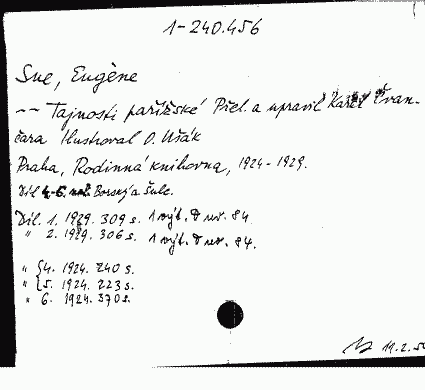 1-240.456
Sue, Eugène
-- Tajnosti pařížské Přel. a upravil Karel Švan-
čara Ilustroval O. Ušák
Praha, Rodinná knihovna, 1924-1929.
Díl 4-6. Borský a Šulc.
Díl. 1. 1929. 309 s. 1 výt. 84.
" 2. 1929. 306 s. 1 výt. 84.
" {4. 1924. 240 s.
" {5. 1924. 223 s.
" 6. 1924. 370 s.
19.2.